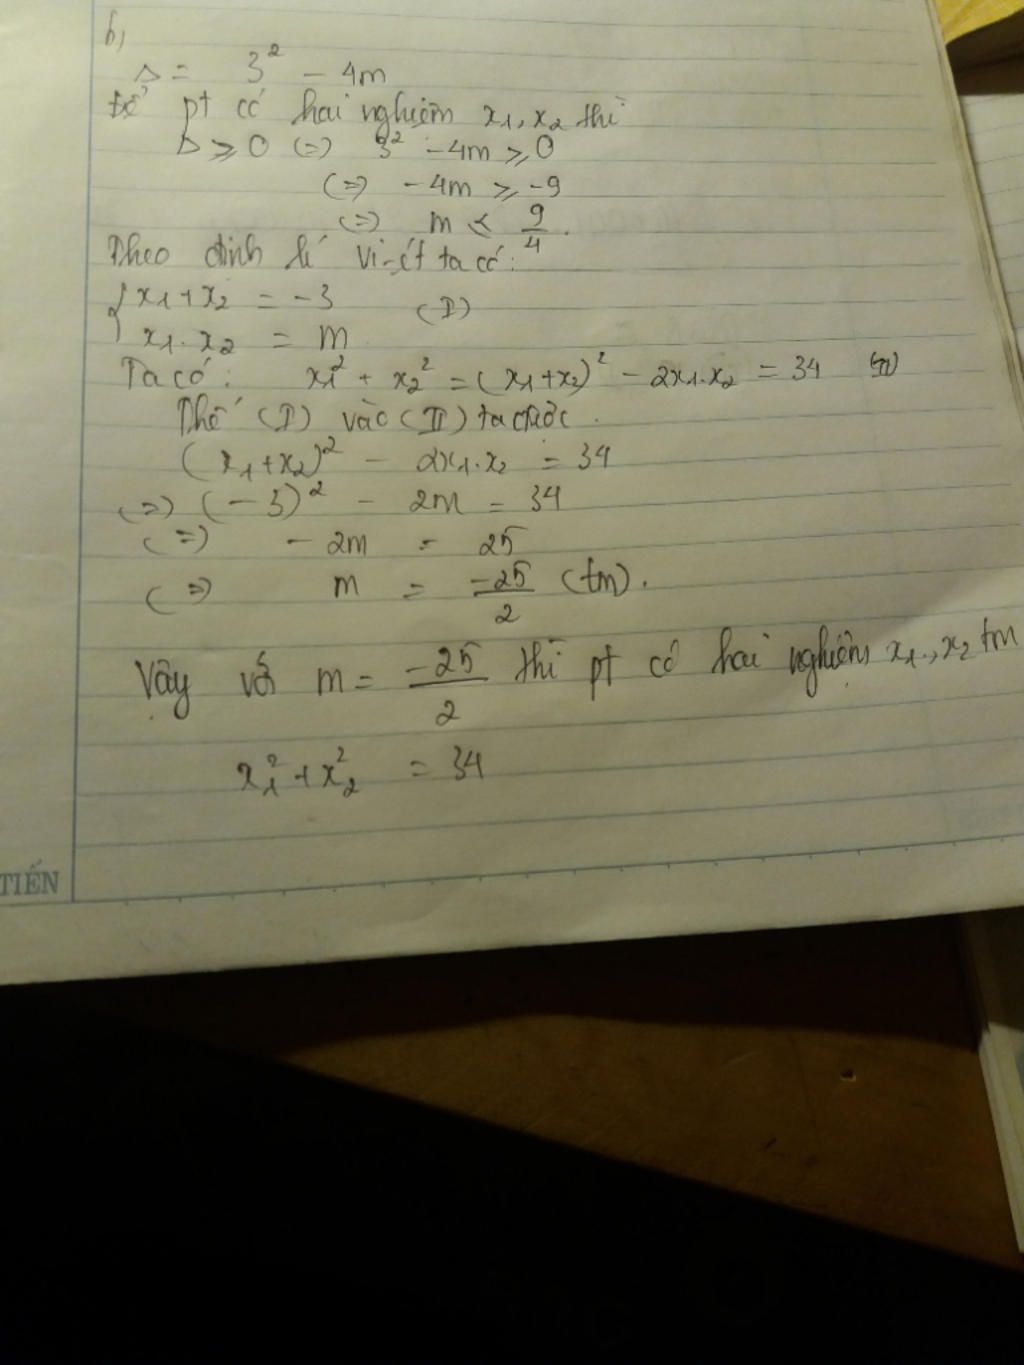 b)
Δ = 3² - 4m
Để pt có hai nghiệm x₁, x₂ thì
Δ ≥ 0 (=) 3² - 4m ≥ 0
(=) - 4m ≥ -9
(=) m ≤ 9/4.
Theo định lí Vi-ét ta có:
{ x₁ + x₂ = -3
x₁. x₂ = m (I)
Ta có: x₁² + x₂² = (x₁+x₂)² - 2x₁.x₂ = 34 (II)
Thế (I) vào (II) ta được.
(x₁+x₂)² - 2x₁.x₂ = 34
(=) (-3)² - 2m = 34
(=) - 2m = 25
(=) m = -25/2 (tm).
Vậy với m = -25/2 thì pt có hai nghiệm x₁, x₂ tm
x₁² + x₂² = 34
TIẾN